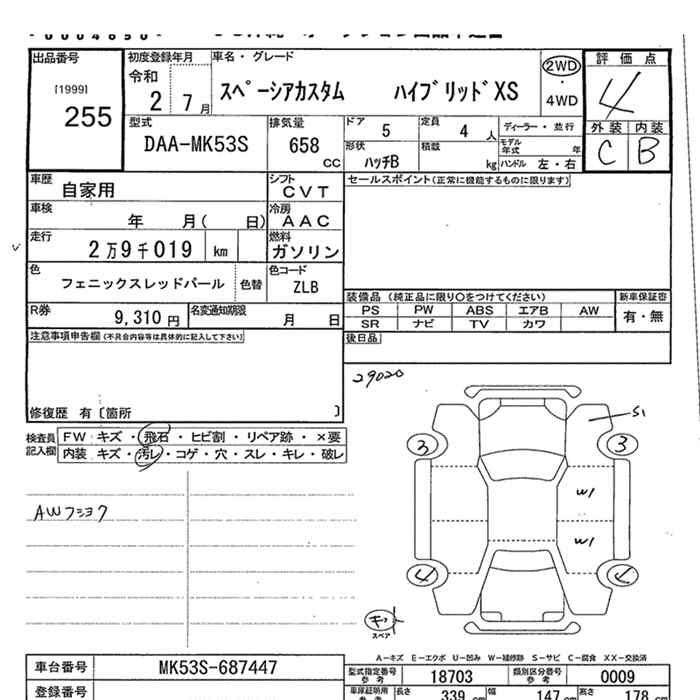 出品番号
[1999]
255
初度登録年月
令和
2 7月
車名・グレード
スペーシアカスタム ハイブリッドXS
2WD
・
4WD
評価点
4
外装 内装
C B
型式
DAA-MK53S
排気量
658
CC
ドア 5
定員 4 人
ディーラー・並行
モデル年式 年
形状 ハッチB
積載 kg
ハンドル 左・右
車歴 自家用
シフト CVT
セールスポイント(正常に機能するものに限ります)
車検 年 月( 日)
冷房 AAC
走行 2万9千019 km
燃料 ガソリン
色 フェニックスレッドパール 色替
色コード ZLB
装備品(純正品に限り○をつけてください)
新車保証書
PS PW ABS エアB AW
有・無
SR ナビ TV カワ
R券 9,310 円
名変通知期限 月 日
注意事項申告欄(不具合内容等は具体的に記入して下さい)
後日品
修復歴 有〔箇所 〕
29020
検査員
記入欄
FW キズ・飛石・ヒビ割・リペア跡・×要
内装 キズ・汚レ・コゲ・穴・スレ・キレ・破レ
S1
3 3
W1
W1
AWフショク
4
キ
スペア
A-キズ E-エクボ U-凹み W-補修跡 S-サビ C-腐食 XX-交換済
車台番号 MK53S-687447
型式指定番号
参考
18703
類別区分番号
参考
0009
登録番号
車庫証明用
参考
長さ 339 cm 幅 147 cm 高さ 178 cm